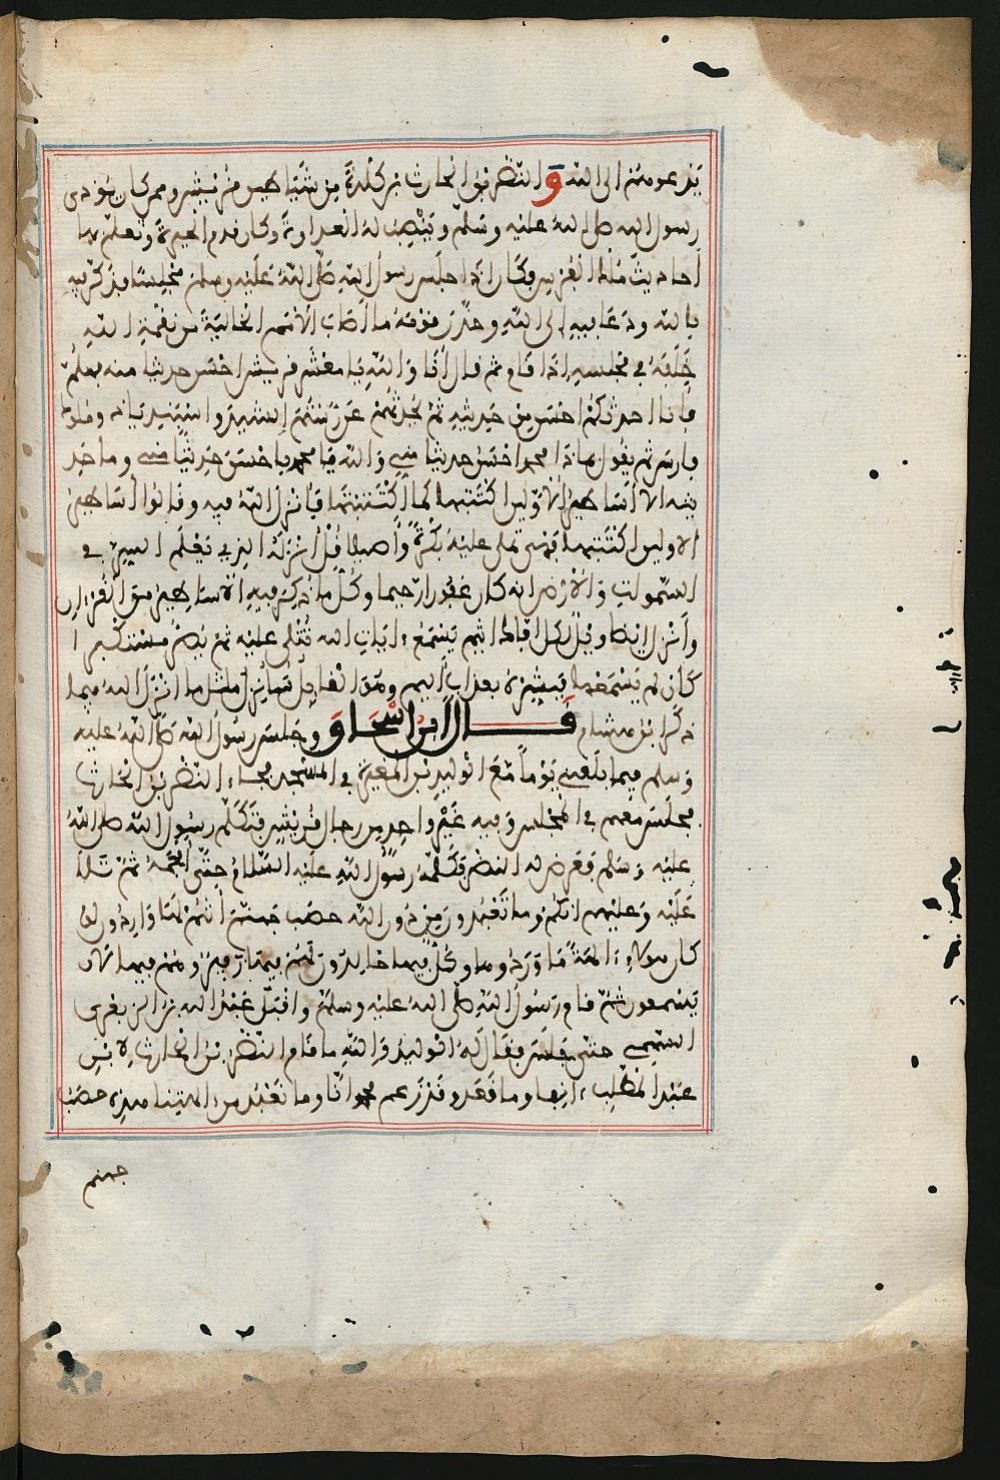 يدعوهم الى الله والنضر بن الحارث بن كلدة من شياطين قريش وممن كان يؤذي
رسول الله صلى الله عليه وسلم وينصب له العداوة وكان قدم الحيرة وتعلم بها
أحاديث ملوك الفرس وكان اذا جلس رسول الله صلى الله عليه وسلم مجلسا فذكر فيه
بالله ودعا فيه الى الله وحذر قومه ما أصاب الأمم الخالية من نقمة الله
خلفه في مجلسه اذا قام ثم قال أنا والله يا معشر قريش احسن حديثا منه بهلم
فأنا احدثكم احسن من حديثه ثم يحدثهم عن رستم الشيد واسبنديار وملوك
فارس ثم يقول بماذا محمد احسن حديثا مني والله يا محمد باحسن حديثا مني وما حديثه
الا أساطير الأولين اكتتبها كما اكتتبتها فأنزل الله فيه وقالوا أساطير
الاولين اكتتبها فهي تملى عليه بكرة وأصيلا قل أنزله الذي يعلم السر في
السموات والأرض انه كان غفورا رحيما وكل ما ذكر فيه الأساطير من القرءان
وأنزل ايضا ويل لكل افاك اثيم يسمع ءايات الله تتلى عليه ثم يصر مستكبرا
كأن لم يسمعها فبشره بعذاب أليم وهو القائل سأنزل مثل ما انزل الله فيما
ذكر ابن هشام قال ابن اسحاق وجلس رسول الله صلى الله عليه
وسلم فيما بلغني يوما مع الوليد بن المغيرة في المسجد فجاء النضر بن الحارث
فجلس معهم في المجلس وفيه غير واحد من رجال قريش فتكلم رسول الله صلى الله
عليه وسلم فعرض له النضر فكلمه رسول الله عليه السلام حتى أفحمه ثم تلا
عليه وعليهم انكم وما تعبدون من دون الله حصب جهنم أنتم لها واردون لو
كان هؤلاء ءالهة ما وردوها وكل فيها خالدون لهم فيها زفير وهم فيها لا
يسمعون ثم قام رسول الله صلى الله عليه وسلم واقبل عبد الله بن الزبعرى
السهمي حتى جلس فقال له الوليد والله ما قام النضر بن الحارث لابن
عبد المطلب ءانفا وما قعد وقد زعم محمد انا وما نعبد من ءالهتنا هذه حصب
جهنم